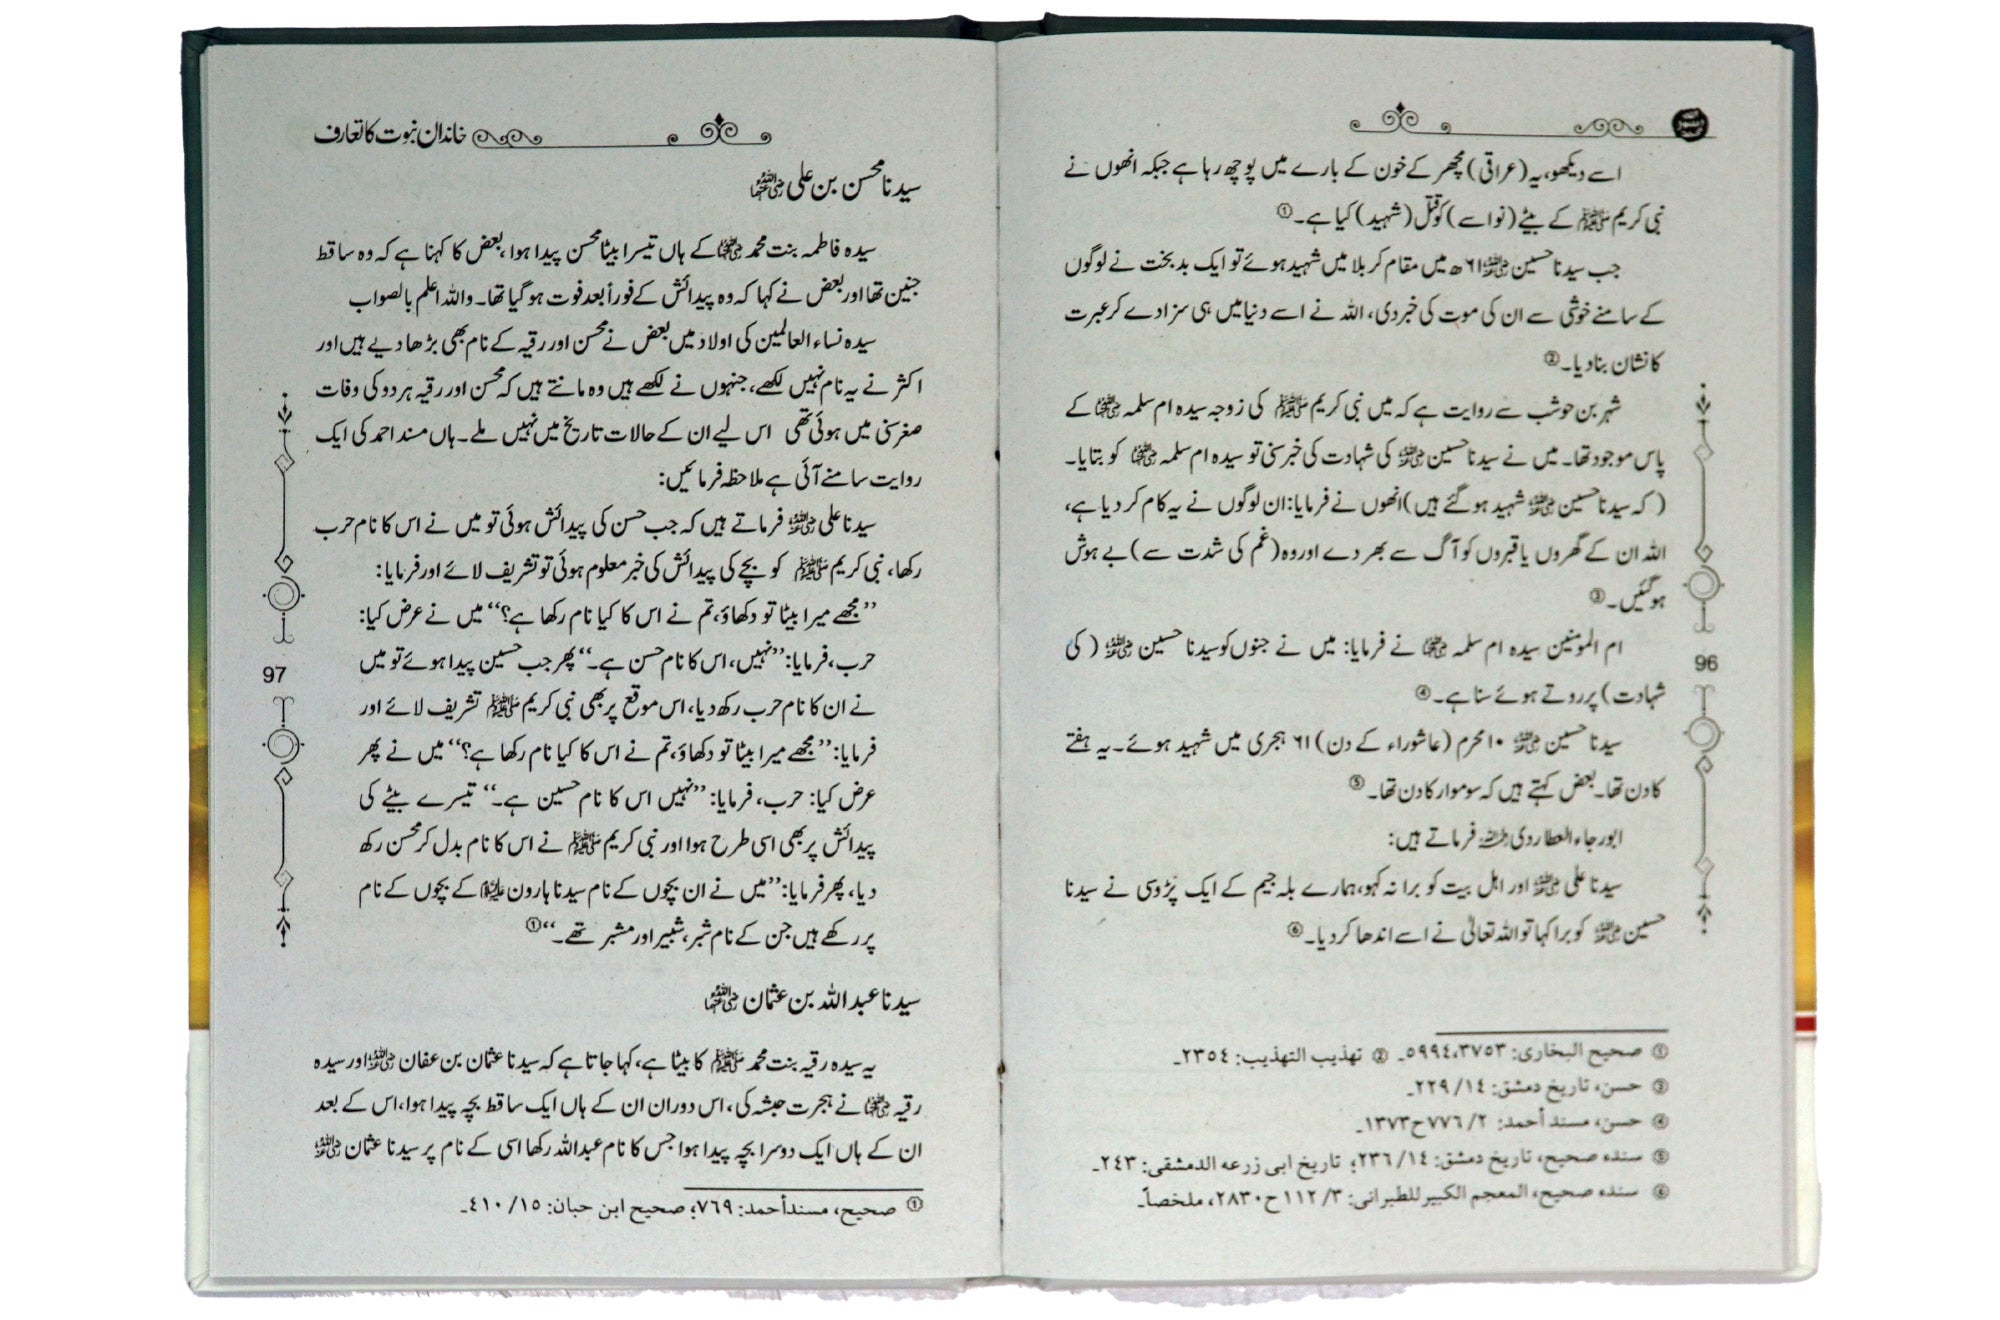 اسے دیکھو، یہ (عراقی) مچھر کے خون کے بارے میں پوچھ رہا ہے جبکہ انھوں نے
نبی کریم ﷺ کے بیٹے (نواسے) کو قتل (شہید) کیا ہے۔①
جب سیدنا حسین رضی اللہ عنہ ۶۱ھ میں مقام کربلا میں شہید ہوئے تو ایک بدبخت نے لوگوں
کے سامنے خوشی سے ان کی موت کی خبر دی، اللہ نے اسے دنیا میں ہی سزا دے کر عبرت
کا نشان بنا دیا۔②
شہر بن حوشب سے روایت ہے کہ میں نبی کریم ﷺ کی زوجہ سیدہ ام سلمہ رضی اللہ عنہا کے
پاس موجود تھا۔ میں نے سیدنا حسین رضی اللہ عنہ کی شہادت کی خبر سنی تو سیدہ ام سلمہ رضی اللہ عنہا کو بتایا۔
(کہ سیدنا حسین رضی اللہ عنہ شہید ہو گئے ہیں) انھوں نے فرمایا: ان لوگوں نے یہ کام کر دیا ہے،
اللہ ان کے گھروں یا قبروں کو آگ سے بھر دے اور وہ (غم کی شدت سے) بے ہوش
ہو گئیں۔③
ام المومنین سیدہ ام سلمہ رضی اللہ عنہا نے فرمایا: میں نے جنوں کو سیدنا حسین رضی اللہ عنہ (کی
شہادت) پر روتے ہوئے سنا ہے۔④
سیدنا حسین رضی اللہ عنہ ۱۰ محرم (عاشوراء کے دن) ۶۱ ہجری میں شہید ہوئے۔ یہ ہفتے
کا دن تھا۔ بعض کہتے ہیں کہ سوموار کا دن تھا۔⑤
ابورجاء العطاردی رحمہ اللہ فرماتے ہیں:
سیدنا علی رضی اللہ عنہ اور اہل بیت کو برا نہ کہو، ہمارے بلہجیم کے ایک پڑوسی نے سیدنا
حسین رضی اللہ عنہ کو برا کہا تو اللہ تعالیٰ نے اسے اندھا کر دیا۔⑥
① صحیح البخاری: ۳۷۵۳، ۵۹۹٤۔ ② تهذیب التهذیب: ۲۳٥٤۔
③ حسن، تاریخ دمشق: ۱٤/ ۲۲۹۔
④ حسن، مسند أحمد: ۲/ ۷۷٦ ح ۱۳۷۳۔
⑤ سنده صحیح، تاریخ دمشق: ۱٤/ ۲۳٦؛ تاریخ ابی زرعه الدمشقی: ۲٤۳۔
⑥ سنده صحیح، المعجم الکبیر للطبرانی: ۳/ ۱۱۲ ح ۲۸۳۰، ملخصاً۔
96
خاندان نبوت کا تعارف
سیدنا محسن بن علی رضی اللہ عنہما
سیدہ فاطمہ بنت محمد رضی اللہ عنہا کے ہاں تیسرا بیٹا محسن پیدا ہوا، بعض کا کہنا ہے کہ وہ ساقط
جنین تھا اور بعض نے کہا کہ وہ پیدائش کے فوراً بعد فوت ہو گیا تھا۔ واللہ اعلم بالصواب
سیدہ نساء العالمین کی اولاد میں بعض نے محسن اور رقیہ کے نام بھی بڑھا دیے ہیں اور
اکثر نے یہ نام نہیں لکھے، جنہوں نے لکھے ہیں وہ مانتے ہیں کہ محسن اور رقیہ ہر دو کی وفات
صغر سنی میں ہوئی تھی اس لیے ان کے حالات تاریخ میں نہیں ملے۔ ہاں مسند احمد کی ایک
روایت سامنے آئی ہے ملاحظہ فرمائیں:
سیدنا علی رضی اللہ عنہ فرماتے ہیں کہ جب حسن کی پیدائش ہوئی تو میں نے اس کا نام حرب
رکھا، نبی کریم ﷺ کو بچے کی پیدائش کی خبر معلوم ہوئی تو تشریف لائے اور فرمایا:
’’مجھے میرا بیٹا تو دکھاؤ، تم نے اس کا کیا نام رکھا ہے؟‘‘ میں نے عرض کیا:
حرب، فرمایا: ’’نہیں، اس کا نام حسن ہے۔‘‘ پھر جب حسین پیدا ہوئے تو میں
نے ان کا نام حرب رکھ دیا، اس موقع پر بھی نبی کریم ﷺ تشریف لائے اور
فرمایا: ’’مجھے میرا بیٹا تو دکھاؤ، تم نے اس کا کیا نام رکھا ہے؟‘‘ میں نے پھر
عرض کیا: حرب، فرمایا: ’’نہیں اس کا نام حسین ہے۔‘‘ تیسرے بیٹے کی
پیدائش پر بھی اسی طرح ہوا اور نبی کریم ﷺ نے اس کا نام بدل کر محسن رکھ
دیا، پھر فرمایا: ’’میں نے ان بچوں کے نام سیدنا ہارون علیہ السلام کے بچوں کے نام
پر رکھے ہیں جن کے نام شبر، شبیر اور مشبر تھے۔‘‘①
سیدنا عبداللہ بن عثمان رضی اللہ عنہما
یہ سیدہ رقیہ بنت محمد ﷺ کا بیٹا ہے، کہا جاتا ہے کہ سیدنا عثمان بن عفان رضی اللہ عنہ اور سیدہ
رقیہ رضی اللہ عنہا نے ہجرت حبشہ کی، اس دوران ان کے ہاں ایک ساقط بچہ پیدا ہوا، اس کے بعد
ان کے ہاں ایک دوسرا بچہ پیدا ہوا جس کا نام عبداللہ رکھا اسی کے نام پر سیدنا عثمان رضی اللہ عنہ
① صحیح، مسند أحمد: ۷٦۹؛ صحیح ابن حبان: ۱٥/ ٤۱۰۔
97